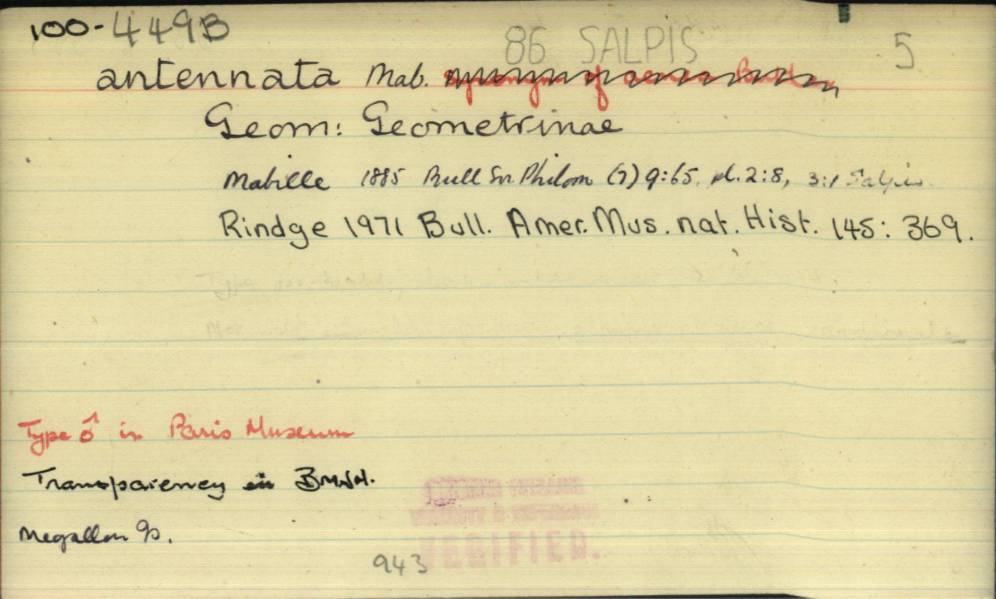 100-449B
86 SALPIS 5
antennata Mab. synonym of
Geom: Geometrinae
Mabille 1885 Bull Soc Philom (7) 9:65, pl. 2:8, 3:1 Salpis
Rindge 1971 Bull. Amer. Mus. nat. Hist. 145: 369.
Type ♂ in Paris Museum
Transparency in BMNH.
VERIFIED.
943